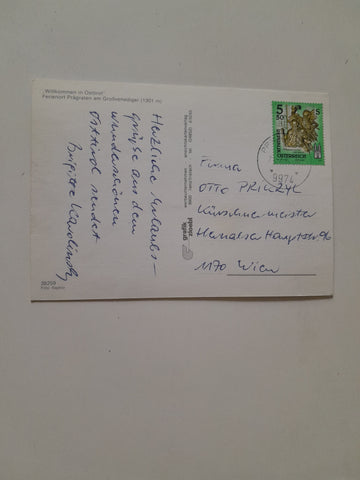 „Willkommen in Osttirol"
Ferienort Prägraten am Großvenediger (1301 m)
Herzliche Urlaubs-
grüße aus dem
wunderschönen
Osttirol sendet
Brigitte
38259
5
50
S
REPUBLIK
ÖSTERREICH
9974
Firma
OTTO PRIKRYL
Kürschnermeister
Hernalser Hauptstr. 96
1170 Wien